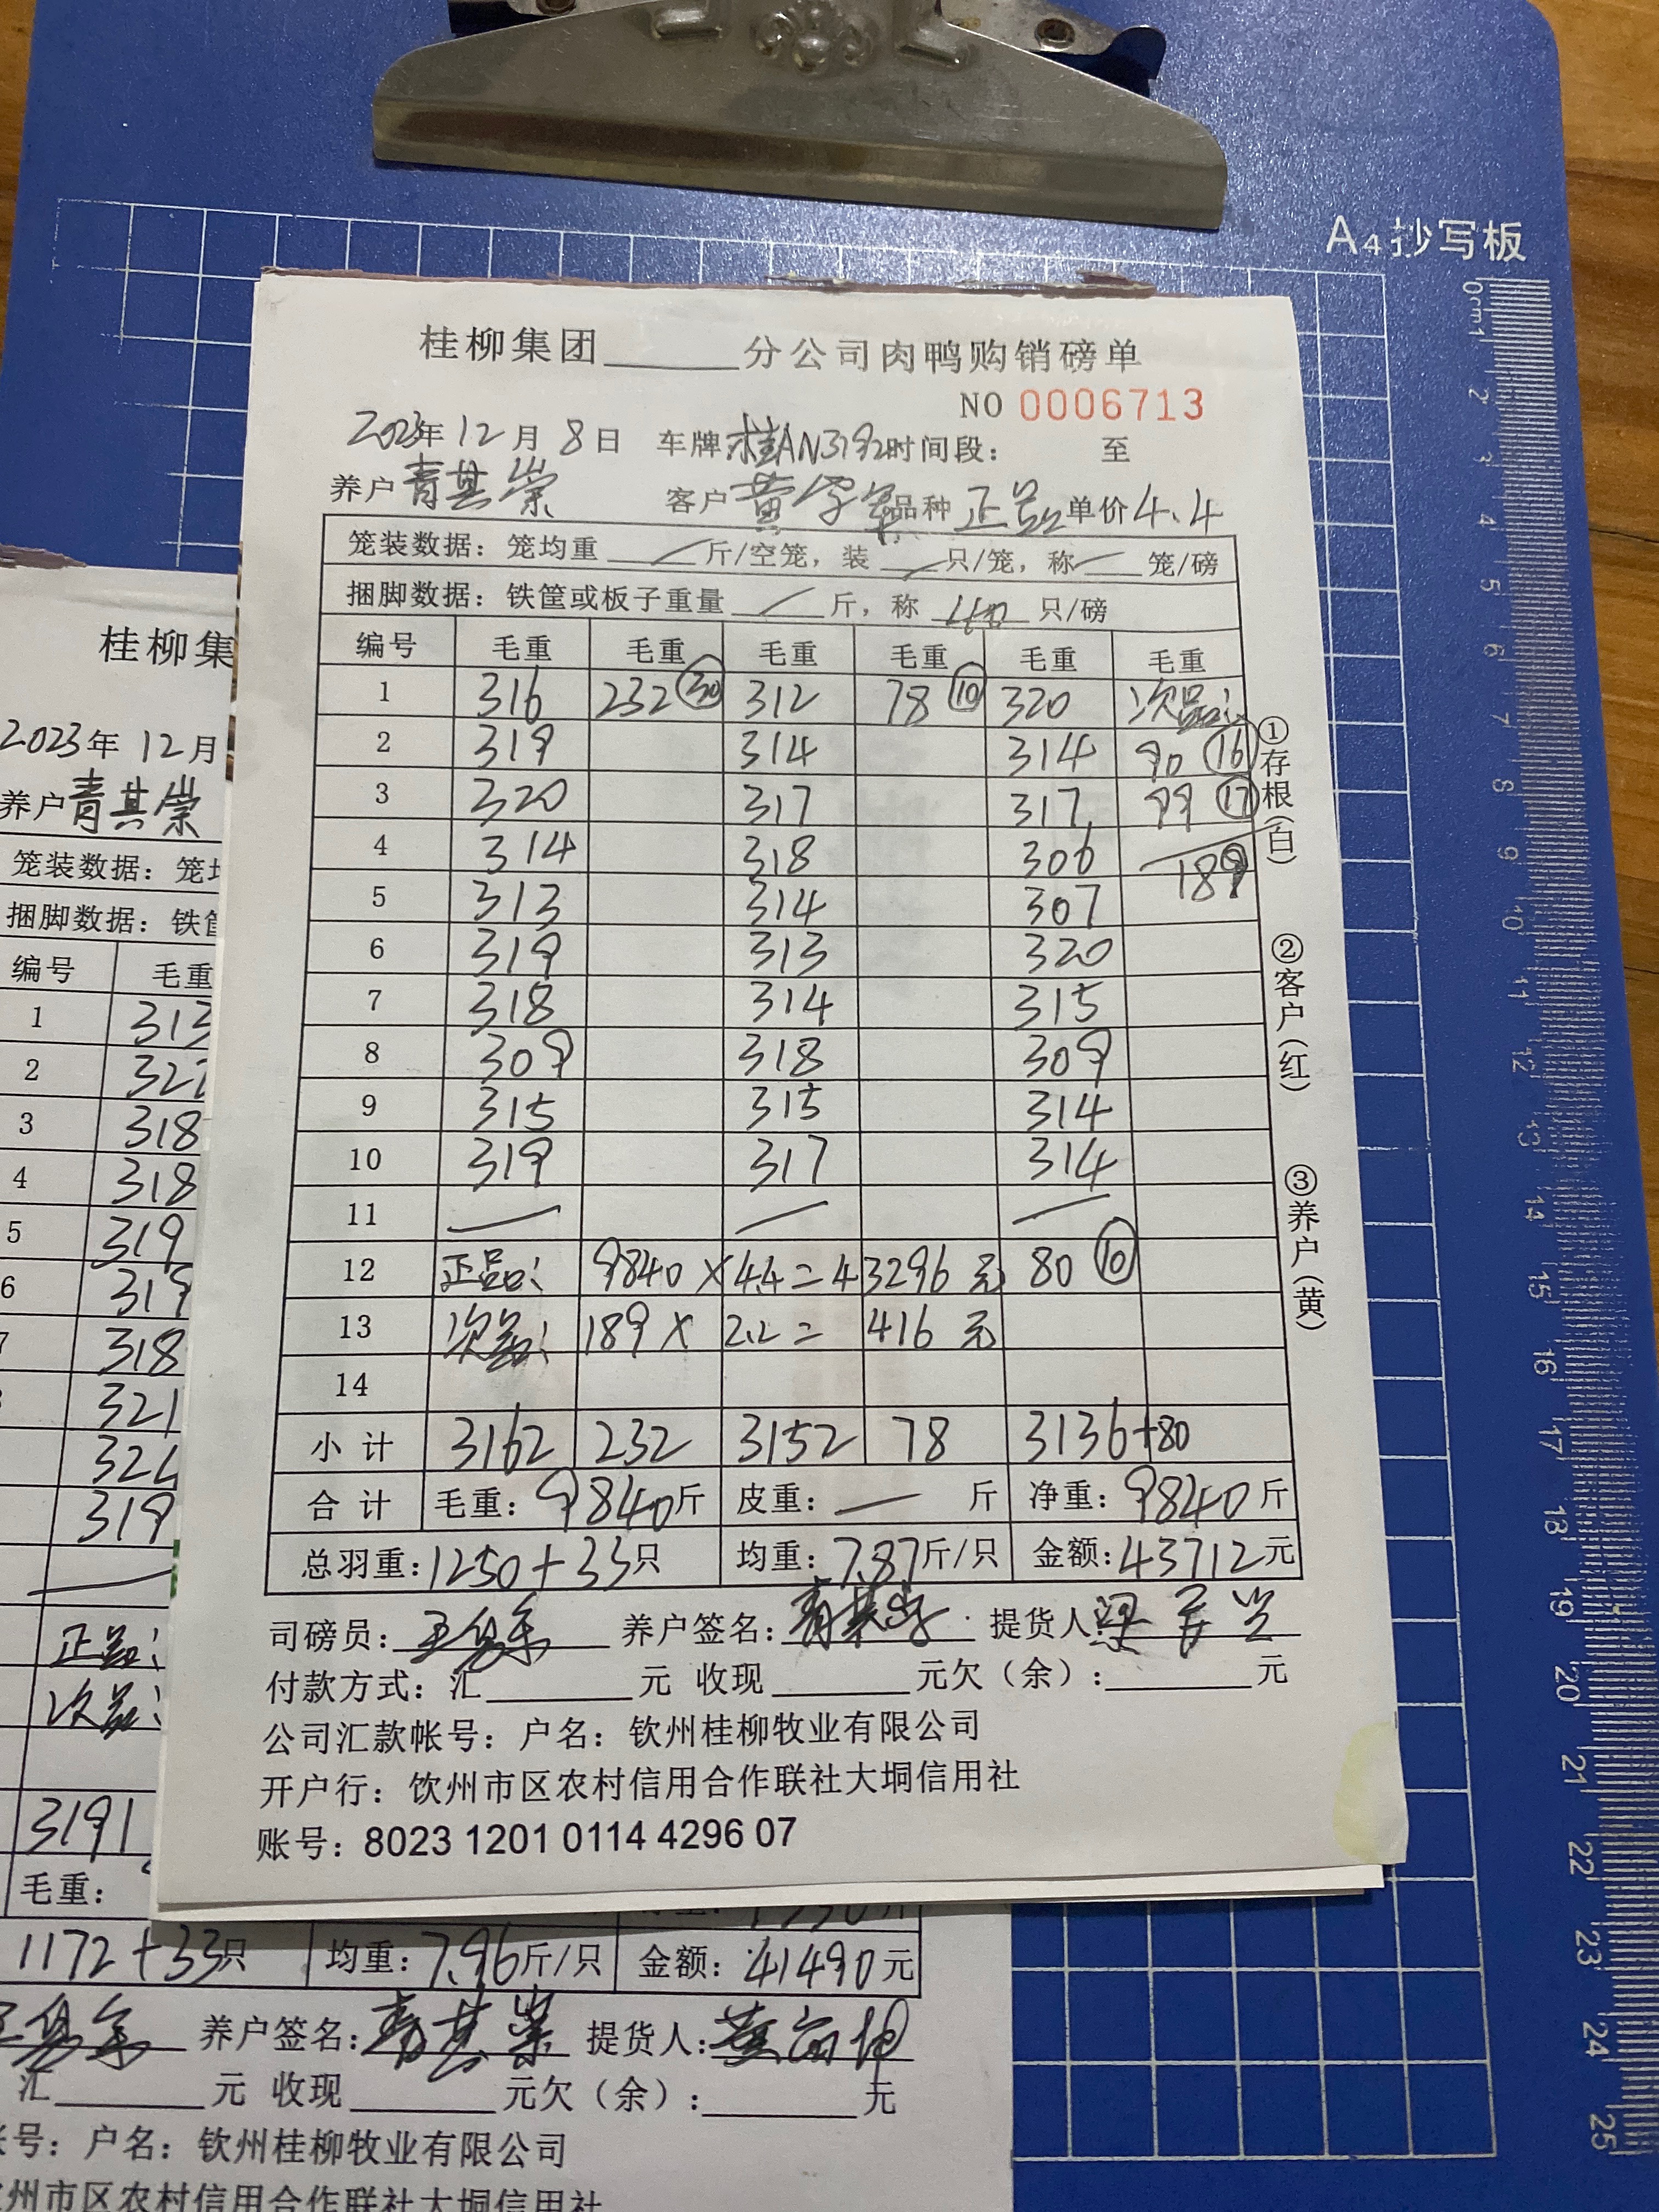 A4抄写板
桂柳集团______分公司肉鸭购销磅单
NO 0006713
2023年12月8日 车牌桂AN3192时间段: 至
养户青其崇 客户黄 品种正品单价4.4
笼装数据:笼均重 / 斤/空笼,装 / 只/笼,称 / 笼/磅
捆脚数据:铁筐或板子重量 / 斤,称 40 只/磅
编号 毛重 毛重 毛重 毛重 毛重 毛重
1 316 232 30 312 78 10 320 次品:
2 319 314 314 90 16
3 320 317 317 99 17
4 314 318 306 189
5 313 314 307
6 319 313 320
7 318 314 315
8 309 318 309
9 315 315 314
10 319 317 314
11 — — —
12 正品: 9840×4.4=43296元 80 10
13 次品: 189×2.2=416元
14
小计 3162 232 3152 78 3136+80
合计 毛重:9840斤 皮重:— 斤 净重:9840斤
总羽重:1250+33只 均重:7.87斤/只 金额:43712元
司磅员: 养户签名:青其崇 提货人:
付款方式:汇______元 收现______元欠(余):______元
公司汇款帐号:户名:钦州桂柳牧业有限公司
开户行:钦州市区农村信用合作联社大垌信用社
账号:8023 1201 0114 4296 07
①存根(白)
②客户(红)
③养户(黄)
桂柳集
2023年12月
养户青其崇
笼装数据:笼
捆脚数据:铁
编号 毛重
1 313
2 322
3 318
4 318
5 319
6 319
7 318
321
322
319
正品:
次品:
3191
毛重:
1172+33只 均重:7.96斤/只 金额:41490元
养户签名:青其崇 提货人:
汇______元 收现______元欠(余):______元
号:户名:钦州桂柳牧业有限公司
州市区农村信用合作联社大垌信用社
0cm1
2
3
4
5
6
7
8
9
10
11
12
13
14
15
16
17
18
19
20
21
22
23
24
25